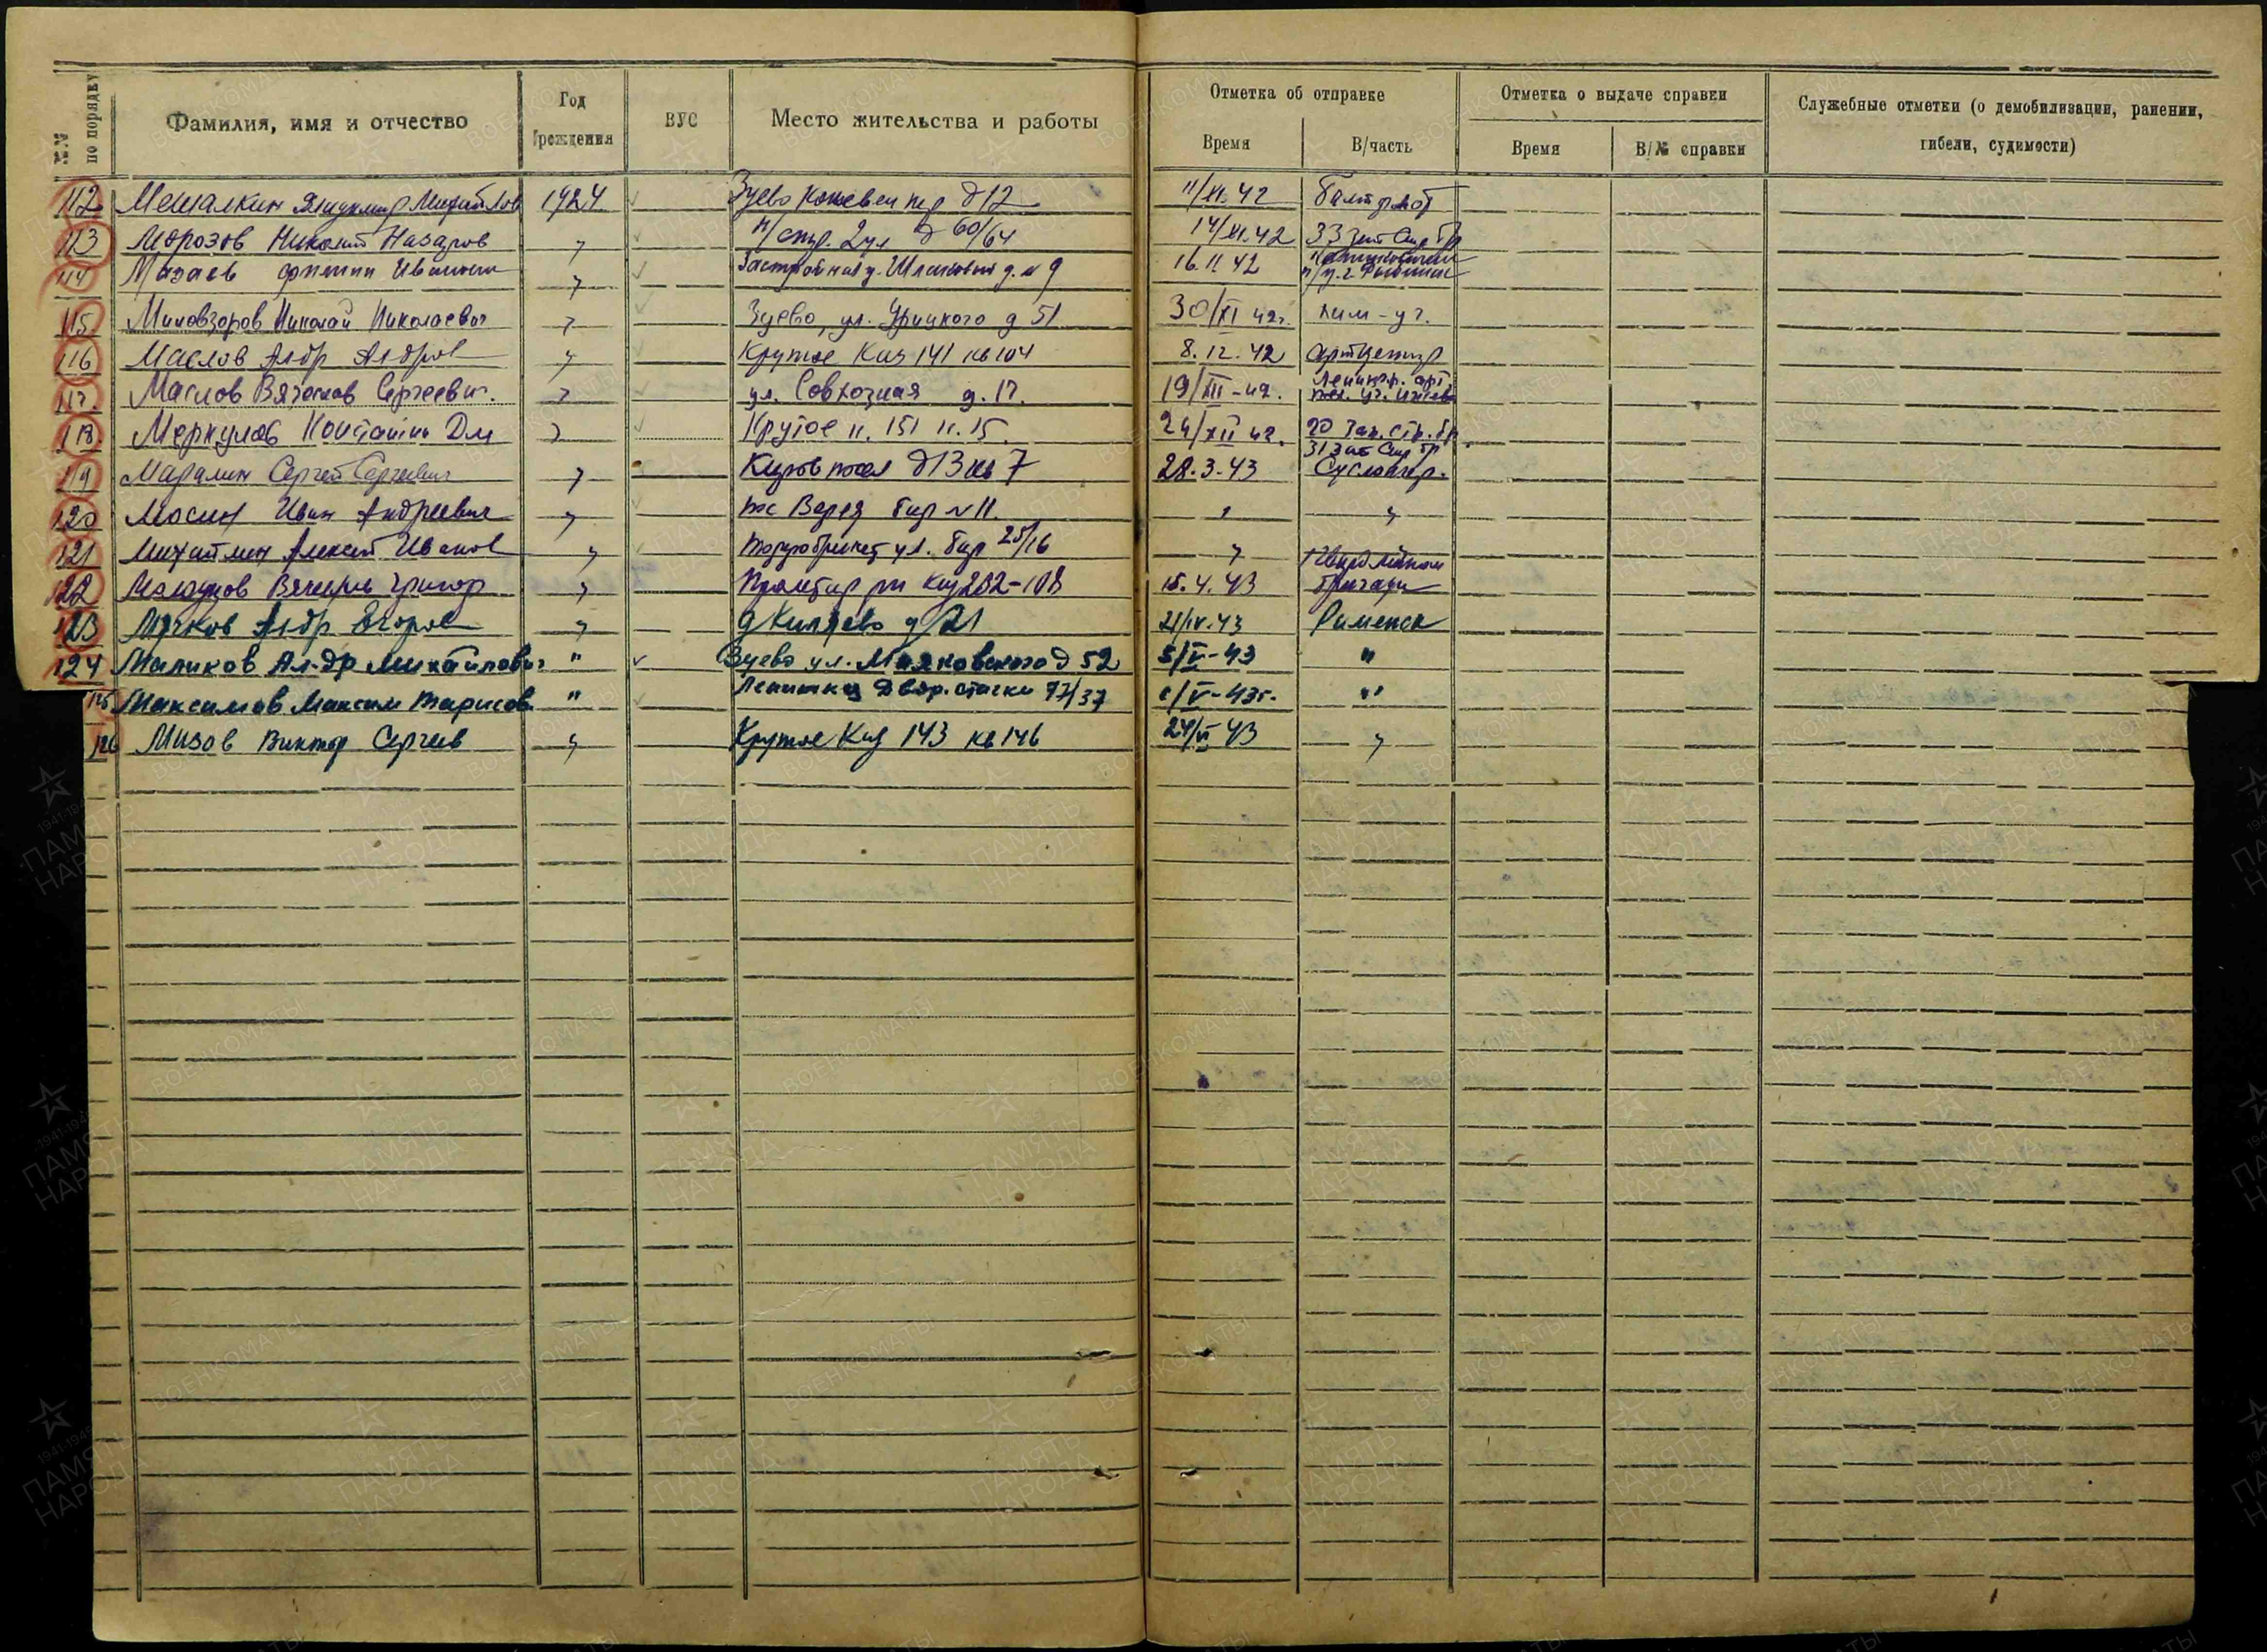 №№ по порядку
Фамилия, имя и отчество
Год рождения
ВУС
Место жительства и работы
Отметка об отправке
Время
В/часть
Отметка о выдаче справки
Время
В/№ справки
Служебные отметки (о демобилизации, ранении, гибели, судимости)
112 Мешалкин Владимир Михайлов 1924 Зуево Кожевен пер д 12 11/XI.42 Балтфлот
113 Морозов Николай Назаров " 2 ул д 60/64 14/XI.42 33 зап Стр бр
114 Мазаев Иванович " д. № 9 16.11.42
115. Миновзоров Николай Николаевич " Зуево, ул. Урицкого д 51 30/XI 42г. хим-уч.
116 Маслов Алдр Алдров " Крутое Каз 141 кв 104 8.12.42 артцентр
117. Маслов Вячеслав Сергеевич. " ул. Совхозная д. 17. 19/XII-42. Ленингр. арт.
118. Меркулов Константин Дм " Крутое к. 151 к. 15. 24/XII 42. 20 Зап. Стр. бр.
119 Маралин Сергей Сергеевич " Киров посел д 13 кв 7 28.3.43 31 зап Стр бр Суслонгер.
120 Мосин Иван Андреевич " пос Верея бар № 11 " "
121 Михайлин Алексей Иванов " Торфобрикет ул. бар 25/16 "
122 Григор " каз 202-108 15.4.43 бригада
123 Алдр Егоров " д Киняево д 21 21/IV-43 Раменск
124 Маликов Ал-др Михайлович " Зуево ул. Маяковского д 52 5/V-43 "
125 Максимов Максим Борисов " Двор. стачки 97/37 /V-43г. "
126 Мизов Виктор Сергеев " Крутое Каз 143 кв 146 24/VI-43 "
ВОЕНКОМАТЫ
1941-1945
ПАМЯТЬ НАРОДА